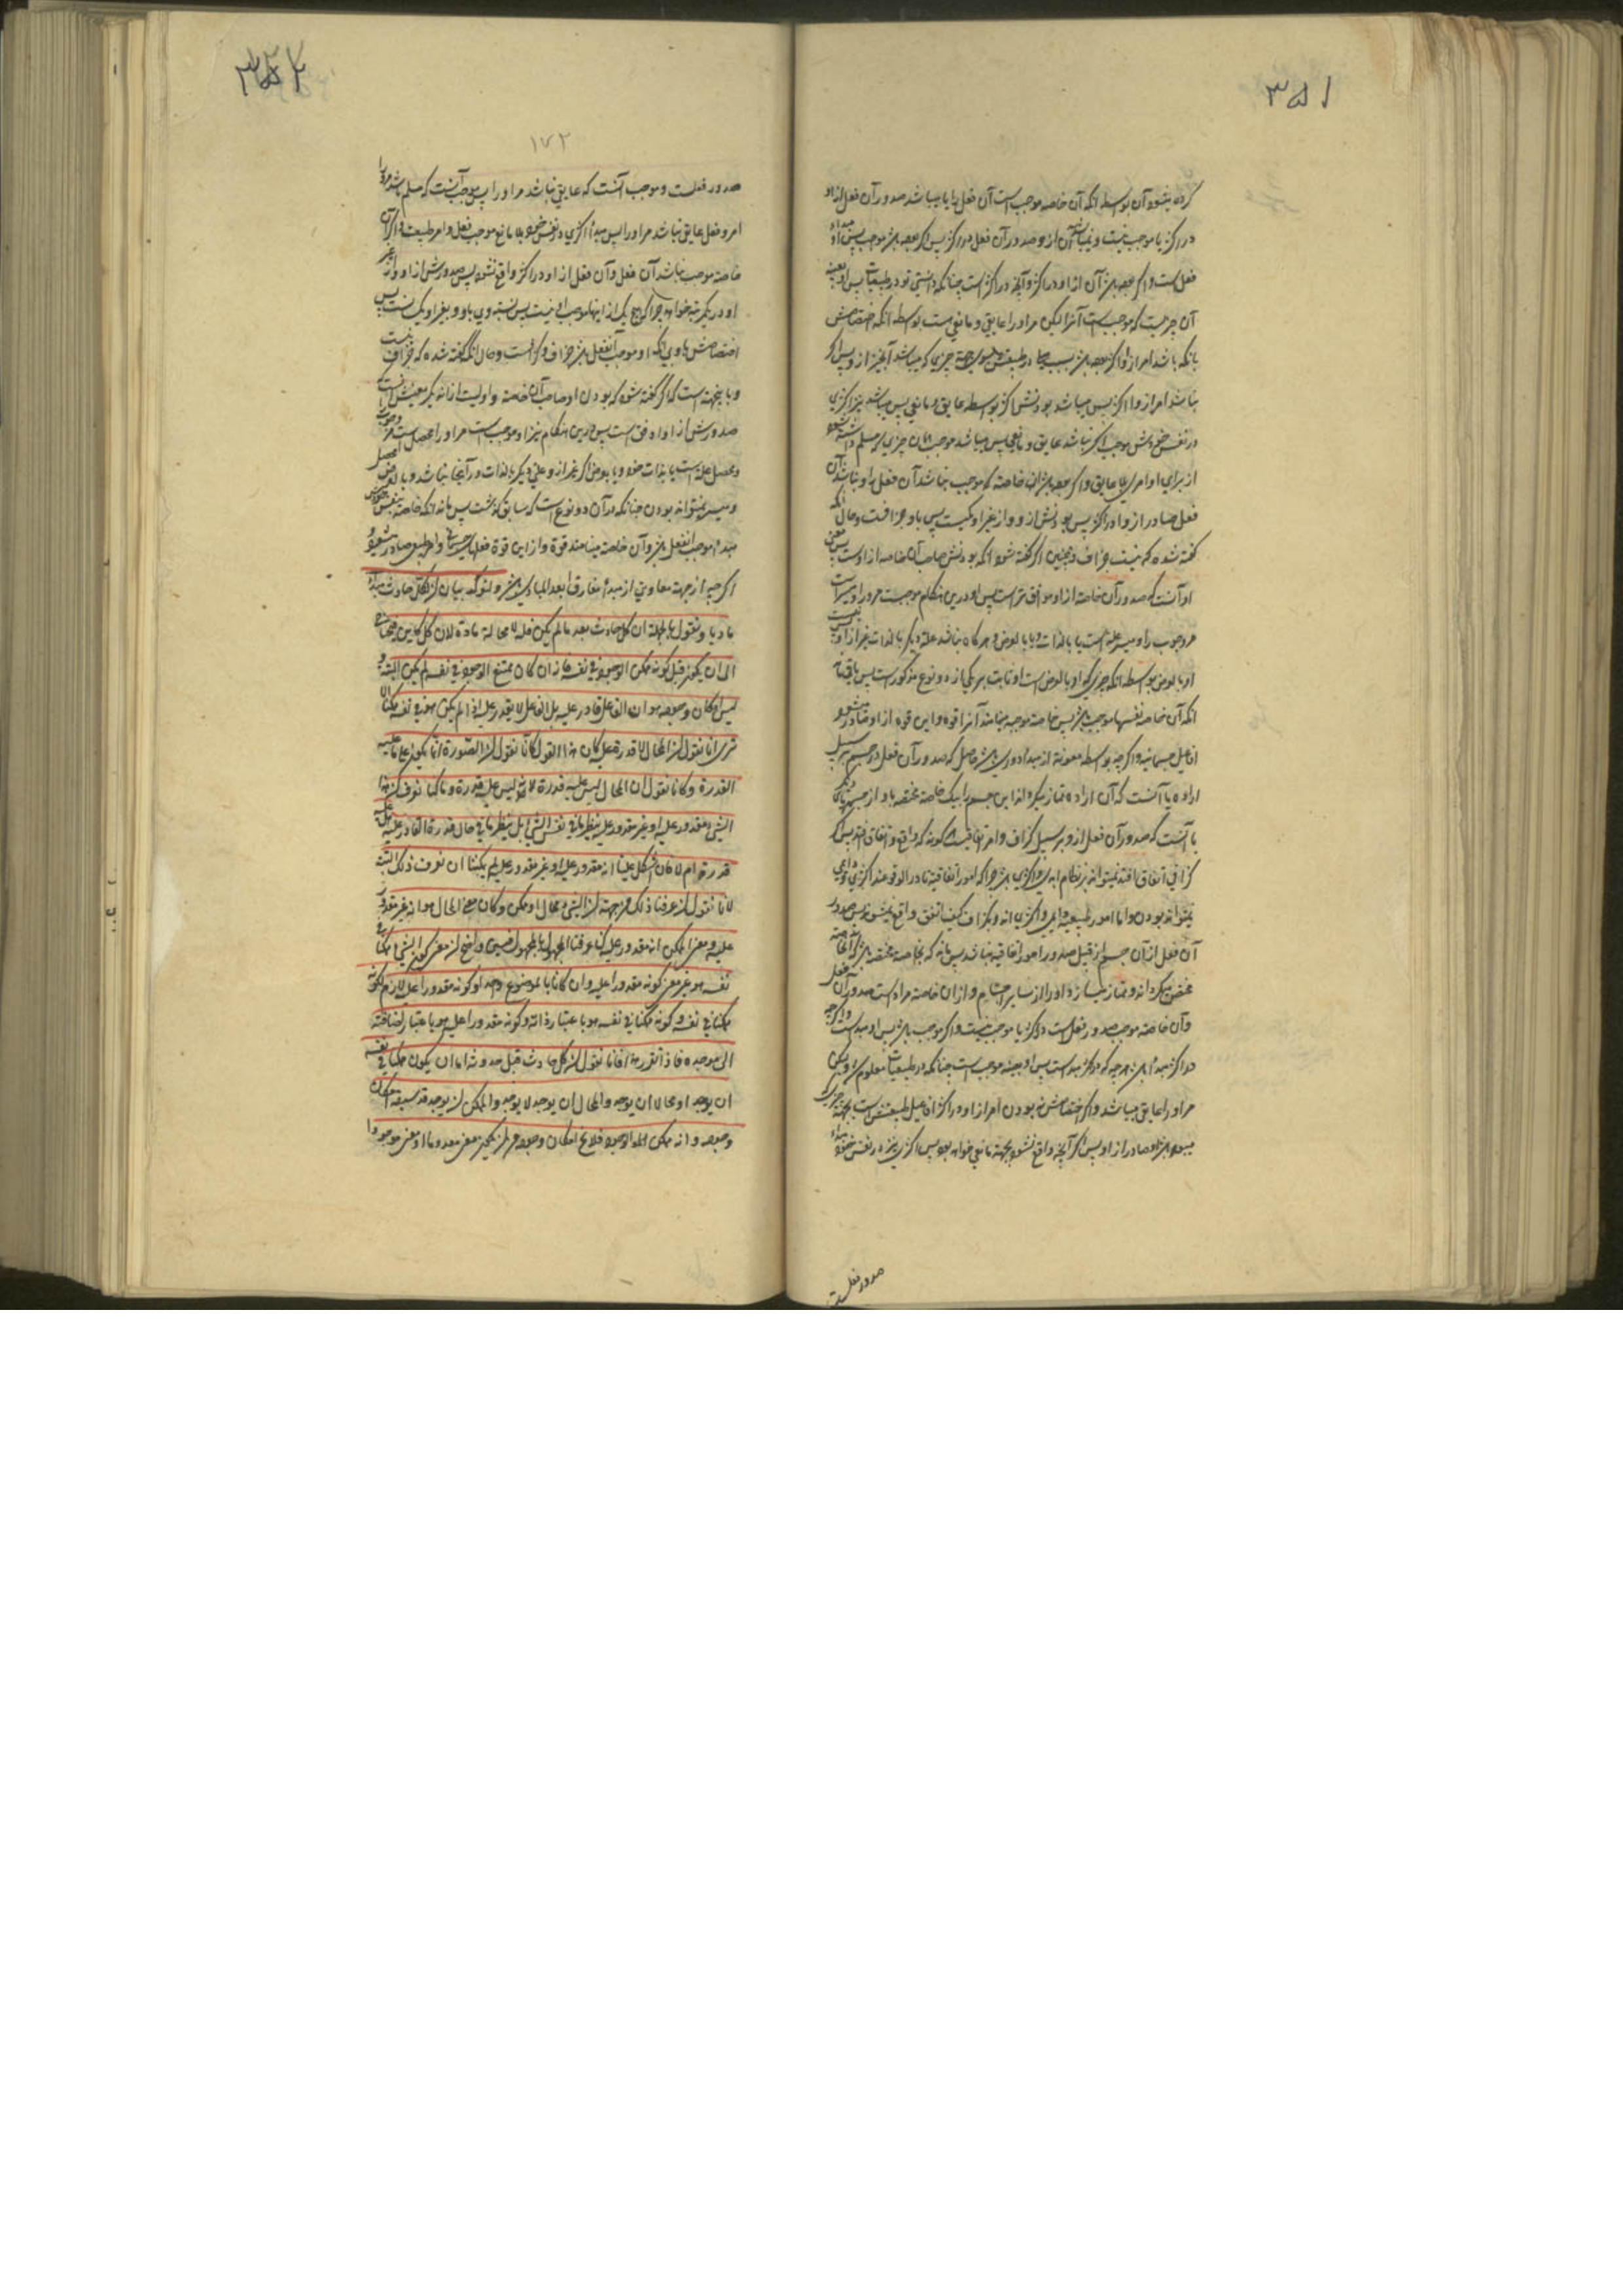 ۳۵۱
کرده میشود آن بواسطه آنکه آن خاصه موجب است آن فعل را یا میباشد صدور آن فعل از او
در اکثر یا موجب نیست و نمیباشد آن از و صدور آن فعل در اکثر پس اگر بوده باشد موجب پس او مبداء
فعل است و اگر بوده باشد آن از او در اکثر و آنچه در اکثر است چنانکه دانستی تو در طبیعیات پس او بعینه
آن چیزیست که موجب است آنرا لیکن مر او را عایق و مانعی است بواسطه آنکه اختصاصش
بانکه باشد امر از و اکثر بوده باشد بسبب میلی در طبیعتش بسوی جهة چیزی که میباشد آنچیز از و پس اگر
نباشد امر از و اکثر پس میباشد بودنش اکثر بواسطه عایق و مانعی پس میباشد نیز اکثری
در نفس خودش موجب اگر نباشد عایق و مانعی پس میباشد موجب آن چیزی که مسلم داشته شود
از برای او امری بلا عایق و اگر بوده باشد آن خاصه که موجب نباشد آن فعل را و نباشد آن
فعل صادر از و در اکثر پس بودنش از و و از غیر او یکیست پس با و جزافست و حال آنکه
گفته شده که نیست جزاف و همچنین اگر گفته شود آنکه بودنش صاحب آن خاصه از اوست پس معنی
او آنست که صدور آن خاصه از او موافق تر است پس او درین هنگام موجب است مر او را و میسر است
مر وجوب را و میسر علت است یا بالذات و یا بالعرض و هر گاه نباشد علة دیگر بالذات غیر از او پس نیست
او بالعرض بواسطه آنکه چیزی که او بالعرض است او ثابت بر یکی از دو نوع مذکور است پس باقیماند
آنکه آن خاصه بنفسها موجب باشد پس خاصه موجبه مینامند آنرا قوه و این قوه از او صادر میشود
افاعیل جسمانیه و اگر چه بواسطه معونة از مبداء دوری باشد حاصل که صدور آن فعل در جسم بر سبیل
اراده یا آنست که آن اراده تمییز میکرد اند این جسم را بیک خاصه مختصه باو از جسمهای دیگر
یا آنست که صدور آن فعل از و بر سبیل گزاف و امر اتفاقیست هر گونه که واقع و اتفاق افتد پس اگر
گزافی اتفاق افتد نمیتواند بر نظام ابدی و اکثری باشد چرا که امور اتفاقیة نادر الوقوعند اکثری و دایمی
نمیتواند بود و اما امور طبیعیه دایمی و اکثری اند و بگزاف کیف اتفق واقع نمیشوند پس صدور
آن فعل از آن جسم از قبیل صدور امور اتفاقیه نباشد پس ماند که بخاصه مختصه باشد که آن خاصه
مختص میگرداند و ممتاز میسازد او را از سایر اجسام و از آن خاصه مراد است صدور آن فعل
و آن خاصه موجب صدور فعل است در اکثر یا موجب نیست و اگر موجب باشد پس او مبداست و اگر چه
در اکثر مبداء باشد هر چه که در اکثر مبداست پس او بعینه موجب است چنانکه در طبیعیات معلوم شد و لیکن
مر او را عایق میباشد و اگر اختصاصش به بودن امر از او در اکثر افاعیل طبیعتش است بجهة چیزی که
میبوده باشد صادر از او پس اگر آنچه واقع نشود بجهة مانعی خواهد بود پس اکثری نیز در نفس خود مبداء
صدور فعلست
۳۵۲
۱۷۲
صدور فعلست و موجب آنست که عایقی نباشد مر او را پس موجب آنست که مسلم باشد مر او را
امر و فعل عایقی نباشد مر او را پس مبداء اکثری در نفس خود بلا مانع موجب فعل و امر طبیعت و اگر آن
خاصه موجب نباشد آن فعل و آن فعل از او در اکثر واقع نشود پس صدورش از او و از غیر
او در یکمرتبه خواهد چرا که هیچ یک از اینها موجب او نیست پس نسبت وی باو و بغیر او یک نسبت پس
اختصاصش باوی آنکه او موجب آنفعل باشد جزاف و گزافست و حال آنکه گفته شده که جزاف نیست
و باینجهت است که اگر گفته شود که بودن او صاحب آن خاصه و اولیت از آنه دیگر معنیش آنست
صدورش از او اوفق است پس درین هنگام نیز او موجب است مر او را یا محصل است مر وجوب
و محصل علة است یا بذات خود و یا بعرض اگر غیر از و علتی دیگر بالذات در آنجا نباشد و یا بالعرض محصل
و میسر نمیتواند بودن چنانکه بر آن دو نوع است که سابق گذشت پس ماند آنکه خاصه بنفس خودش
مبداء موجب آنفعل باشد و آن خاصه مینامند قوة و از این قوة فعلها جسمانی و امر طبیعی صادر میشود و
اگر چه از جهة معاونتی از مبداء مفارق ابعد المبادی باشد و لنؤکد بیان ان لکل حادث مبداء
مادیا و نقول بالجملة ان کل حادث بعد ما لم یکن فله لا محالة مادة لان کل کاین یحتاج
الی ان یکون قبل کونه ممکن الوجود فی نفسه فانه ان کان ممتنع الوجود فی نفسه لم یکن البتة و
لیس امکان وجوده هو ان الفاعل قادر علیه بل الفاعل لا یقدر علیه اذا لم یکن هو فی نفسه ممکنا الا
تری انا نقول ان المحال لا قدرة علیه کان هذا القول کانا نقول ان القدرة انما یکون علی ما علیه
القدرة و کانا نقول ان المحال لیس علیه قدرة لانه لیس علیه قدرة و ما کنا نعرف ان هذا
الشیء مقدور علیه او غیر مقدور علیه بنظرنا فی نفس الشیء بل بنظرنا فی حال قدرة القادر علیه هل علیه
قدرة ام لا فان اشکل علینا انه مقدور علیه او غیر مقدور علیه لم یمکننا ان نعرف ذلک البتة
لانا نقول ان عرفنا ذلک من جهة ان الشیء محال او ممکن و کان معنی المحال هو انه غیر مقدور
علیه و معنی الممکن انه مقدور علیه کنا عرفنا المجهول بالمجهول فبین واضح ان معنی کون الشیء ممکنا فی
نفسه هو غیر معنی کونه مقدورا علیه و ان کانا بالموضوع واحدا و کونه مقدورا علیه لازم لکونه
ممکنا فی نفسه و کونه ممکنا فی نفسه هو باعتبار ذاته و کونه مقدورا علیه هو باعتبار اضافته
الی موجده فاذ تقرر هذا فانا نقول ان کل حادث قبل حدوثه اما ان یکون ممکنا فی نفسه
ان یوجد او محالا ان یوجد و المحال ان یوجد لا یوجد و الممکن ان یوجد قد سبقه امکان
وجوده و انه ممکن الوجود فلا یخ امکان وجوده من ان یکون معنی معدوما او معنی موجودا